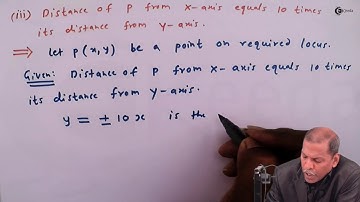 (iii) Distance of P from x-axis equals 10 times
its distance from y-axis.
⟹ Let P(x,y) be a point on required locus.
Given: Distance of P from x-axis equals 10 times
its distance from y-axis.
y = ± 10x is the